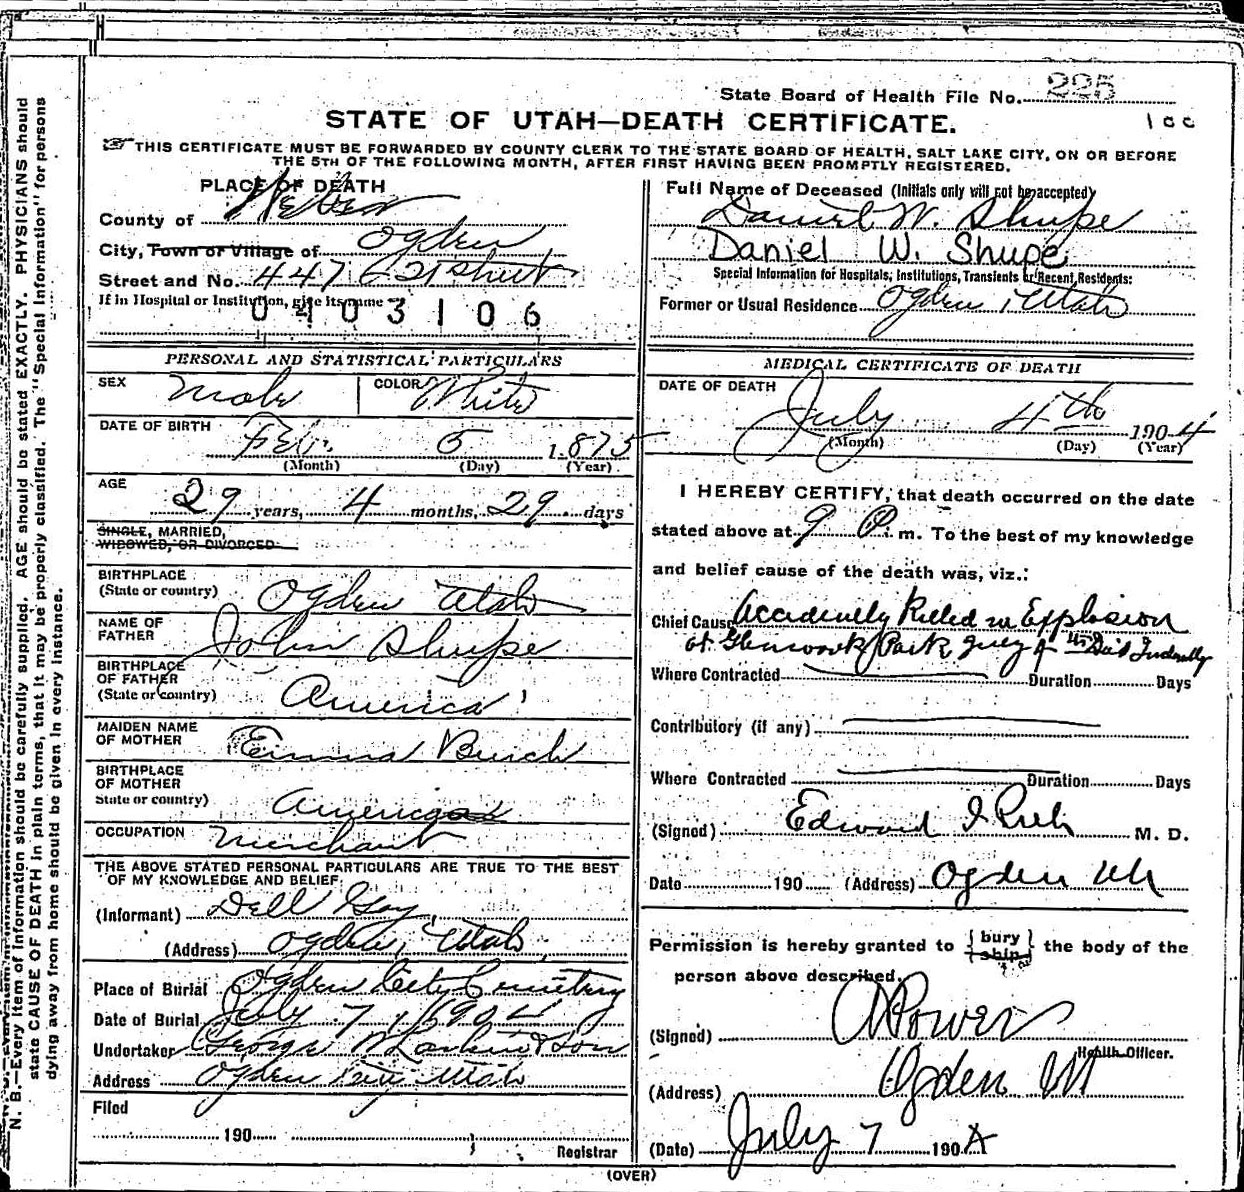 State Board of Health File No. 225
100
STATE OF UTAH—DEATH CERTIFICATE.
THIS CERTIFICATE MUST BE FORWARDED BY COUNTY CLERK TO THE STATE BOARD OF HEALTH, SALT LAKE CITY, ON OR BEFORE
THE 5TH OF THE FOLLOWING MONTH, AFTER FIRST HAVING BEEN PROMPTLY REGISTERED.
PLACE OF DEATH
County of Weber
City, Town or Village of Ogden
Street and No. 447 21 Street
If in Hospital or Institution, give its name
0403106
PERSONAL AND STATISTICAL PARTICULARS
SEX Male COLOR White
DATE OF BIRTH Feb. 5 1875
(Month) (Day) (Year)
AGE
29 years, 4 months, 29 days
SINGLE, MARRIED,
WIDOWED, OR DIVORCED
BIRTHPLACE
(State or country) Ogden Utah
NAME OF
FATHER John Shupe
BIRTHPLACE
OF FATHER
(State or country) America
MAIDEN NAME
OF MOTHER Emma Burch
BIRTHPLACE
OF MOTHER
State or country) America
OCCUPATION Merchant
THE ABOVE STATED PERSONAL PARTICULARS ARE TRUE TO THE BEST
OF MY KNOWLEDGE AND BELIEF.
(Informant) Dell
(Address) Ogden, Utah
Place of Burial Ogden City Cemetery
Date of Burial July 7, 1904
Undertaker George Son
Address Ogden City Utah
Filed
190
Registrar
Full Name of Deceased (Initials only will not be accepted)
Daniel W. Shupe
Daniel W. Shupe
Special Information for Hospitals, Institutions, Transients or Recent Residents:
Former or Usual Residence Ogden, Utah
MEDICAL CERTIFICATE OF DEATH
DATE OF DEATH
July 4th 1904
(Month) (Day) (Year)
I HEREBY CERTIFY, that death occurred on the date
stated above at 9 P. m. To the best of my knowledge
and belief cause of the death was, viz.:
Chief Cause Accidently Killed in Explosion
at Glenwood Park July 4th
Where Contracted Duration Days
Contributory (if any)
Where Contracted Duration Days
(Signed) Edward I Rich M. D.
Date 190 (Address) Ogden Ut
Permission is hereby granted to { bury ship } the body of the
person above described.
(Signed) Power
Health Officer.
(Address) Ogden Ut
(Date) July 7 1904
(OVER)
N. B.—Every item of information should be carefully supplied. AGE should be stated EXACTLY. PHYSICIANS should
state CAUSE OF DEATH in plain terms, that it may be properly classified. The "Special Information" for persons
dying away from home should be given in every instance.